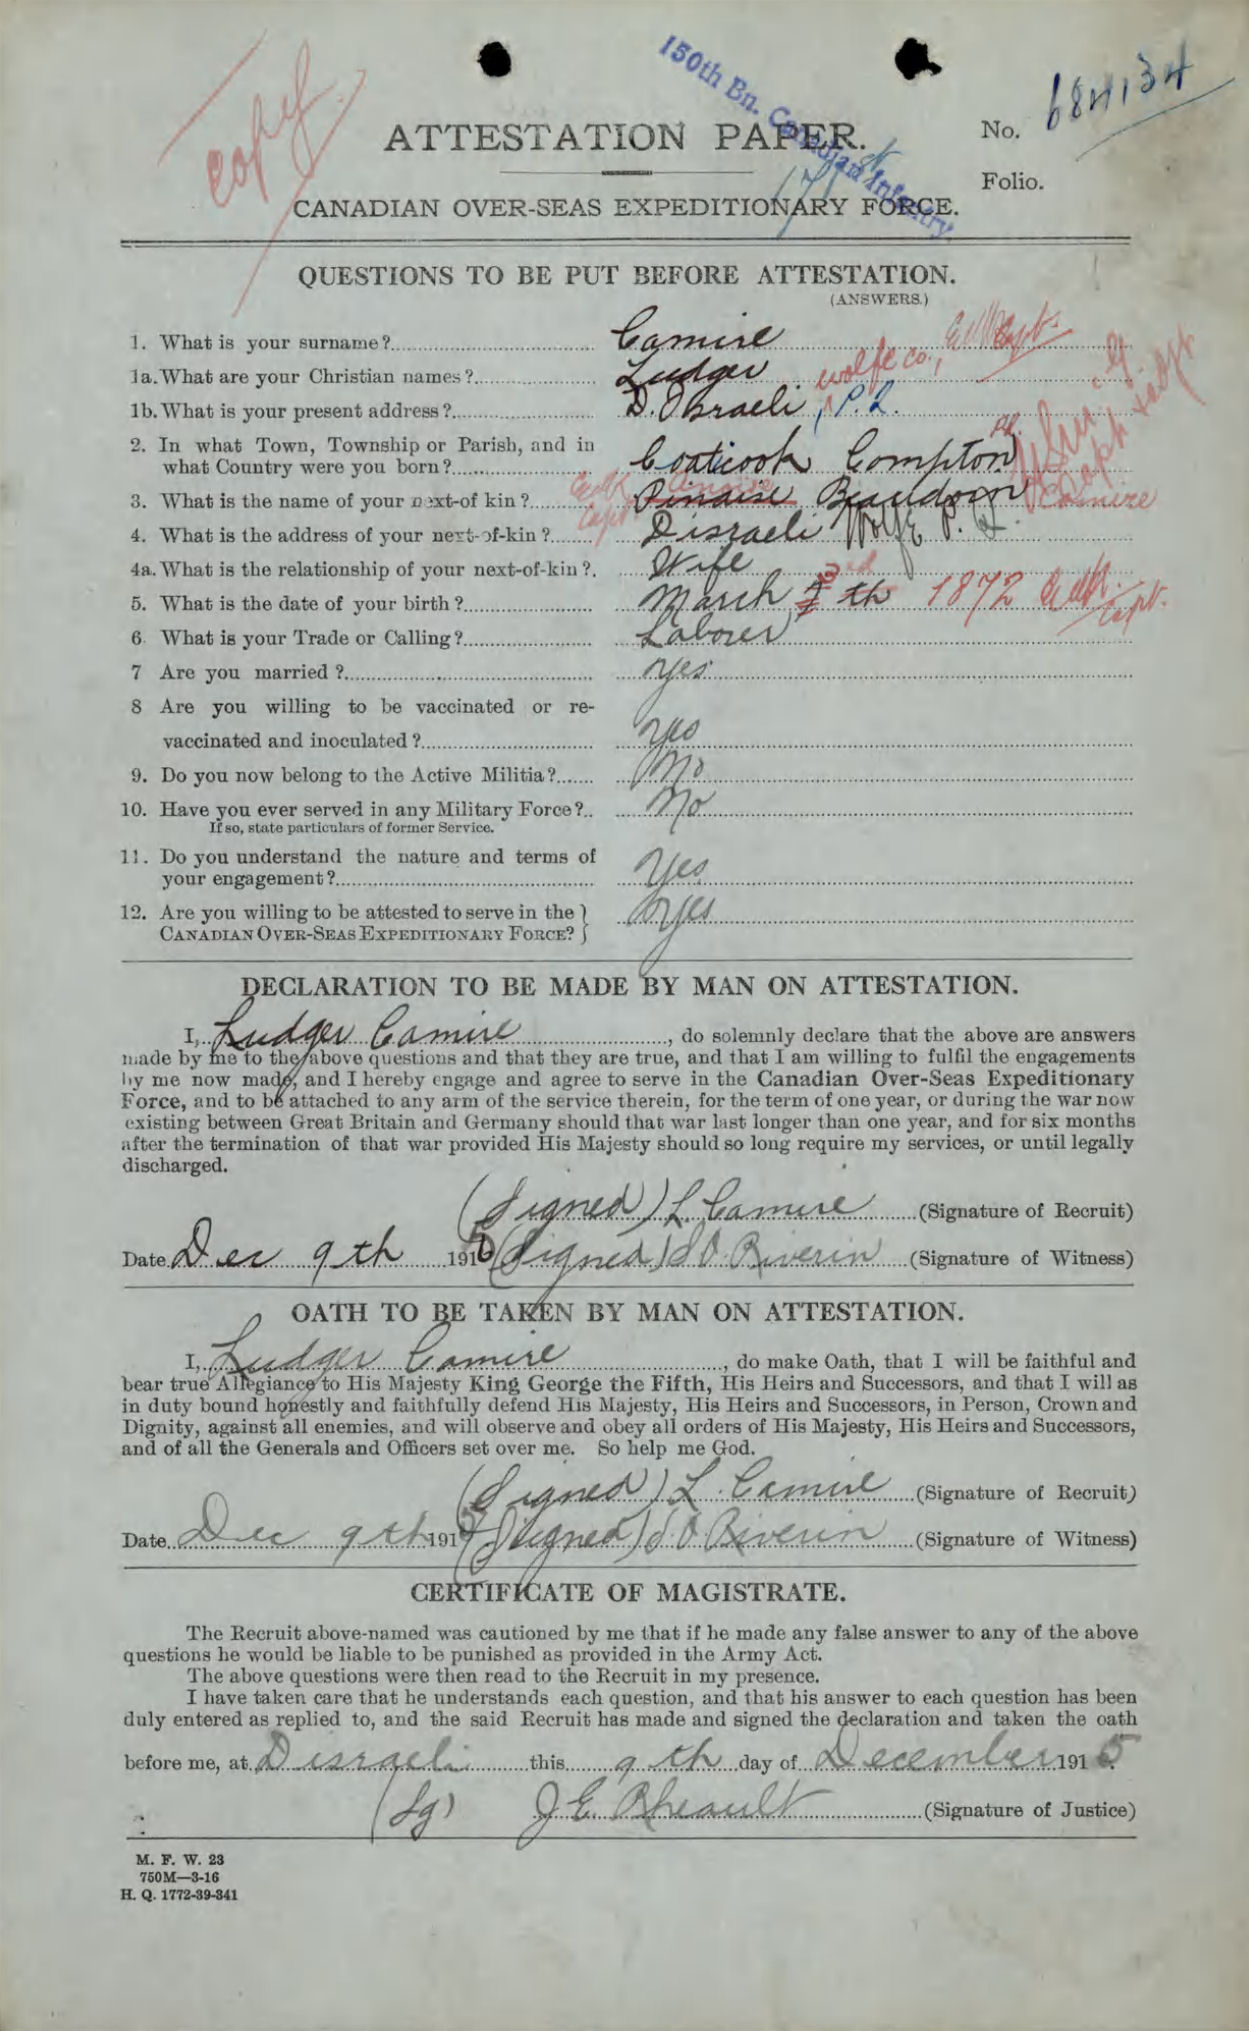 copy
150th Bn. Canadian Infantry
No. 684134
ATTESTATION PAPER.
Folio.
171st
CANADIAN OVER-SEAS EXPEDITIONARY FORCE.
QUESTIONS TO BE PUT BEFORE ATTESTATION.
(ANSWERS.)
1. What is your surname? Camire
1a. What are your Christian names? Ludger wolfe co.,
1b. What is your present address? D. Israeli, P.Q.
2. In what Town, Township or Parish, and in
what Country were you born? Coaticook Compton
3. What is the name of your next-of kin? Pinaise Beaudoin Camire
4. What is the address of your next-of-kin? Disraeli Wolfe P. Q.
4a. What is the relationship of your next-of-kin? Wife
5. What is the date of your birth? March 3rd th 1872 Capt.
6 What is your Trade or Calling? Laborer
7 Are you married? Yes
8 Are you willing to be vaccinated or re-
vaccinated and inoculated? Yes
9. Do you now belong to the Active Militia? No
10. Have you ever served in any Military Force? No
If so, state particulars of former Service.
11. Do you understand the nature and terms of
your engagement? Yes
12. Are you willing to be attested to serve in the } Yes
CANADIAN OVER-SEAS EXPEDITIONARY FORCE?
DECLARATION TO BE MADE BY MAN ON ATTESTATION.
I, Ludger Camire, do solemnly declare that the above are answers
made by me to the above questions and that they are true, and that I am willing to fulfil the engagements
by me now made, and I hereby engage and agree to serve in the Canadian Over-Seas Expeditionary
Force, and to be attached to any arm of the service therein, for the term of one year, or during the war now
existing between Great Britain and Germany should that war last longer than one year, and for six months
after the termination of that war provided His Majesty should so long require my services, or until legally
discharged.
(Signed) L. Camire (Signature of Recruit)
Date Dec 9th 1915 (Signed) S O Riverin (Signature of Witness)
OATH TO BE TAKEN BY MAN ON ATTESTATION.
I, Ludger Camire, do make Oath, that I will be faithful and
bear true Allegiance to His Majesty King George the Fifth, His Heirs and Successors, and that I will as
in duty bound honestly and faithfully defend His Majesty, His Heirs and Successors, in Person, Crown and
Dignity, against all enemies, and will observe and obey all orders of His Majesty, His Heirs and Successors,
and of all the Generals and Officers set over me. So help me God.
(Signed) L. Camire (Signature of Recruit)
Date Dec 9th 1915 (Signed) S O Riverin (Signature of Witness)
CERTIFICATE OF MAGISTRATE.
The Recruit above-named was cautioned by me that if he made any false answer to any of the above
questions he would be liable to be punished as provided in the Army Act.
The above questions were then read to the Recruit in my presence.
I have taken care that he understands each question, and that his answer to each question has been
duly entered as replied to, and the said Recruit has made and signed the declaration and taken the oath
before me, at Disraeli this 9th day of December 1915
(Sg) J E Rheault (Signature of Justice)
M. F. W. 23
750M—3-16
H. Q. 1772-39-841